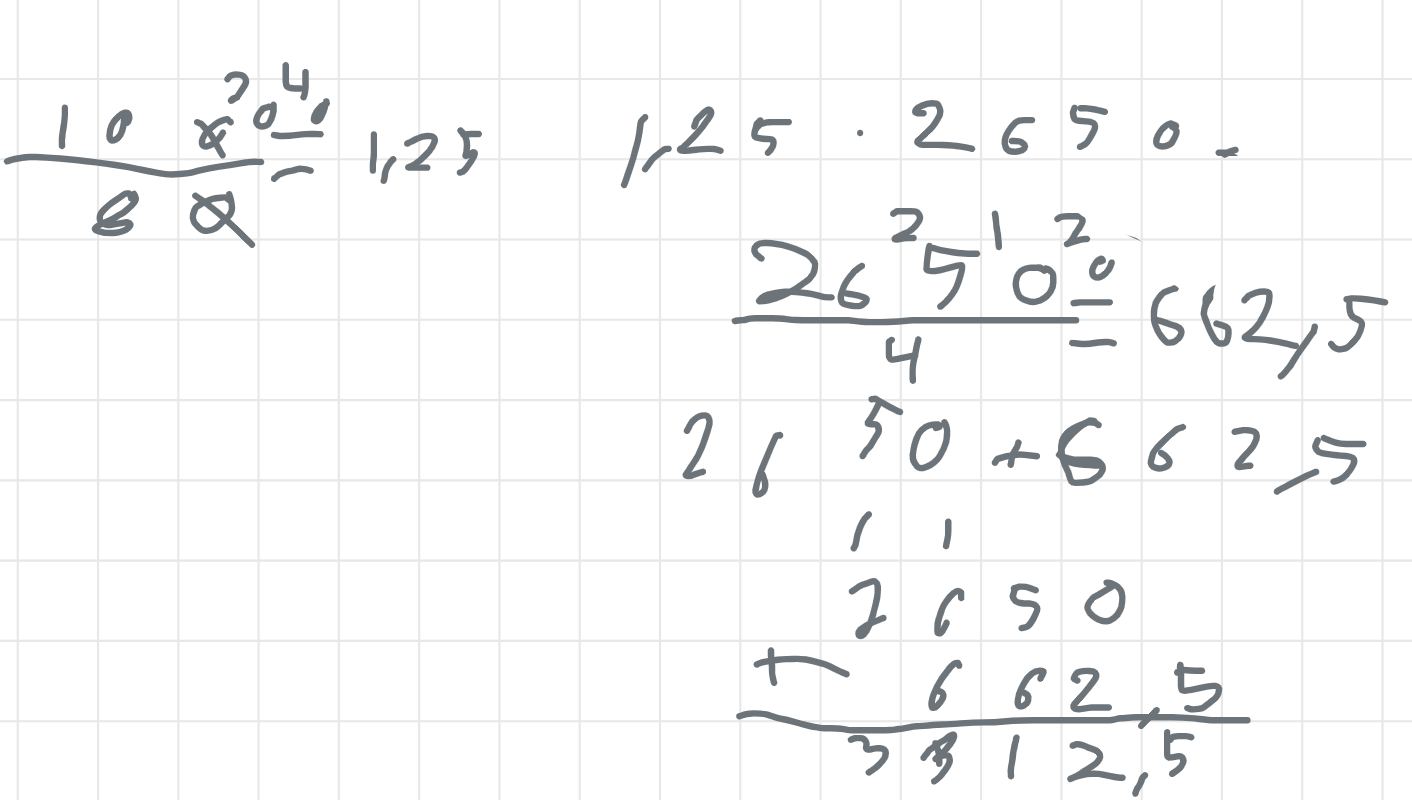 10 0 2 0 4 0 = 1,25
8 0
1,25 · 2650 =
26 2 5 1 0 2 0 = 662,5
4
2650 + 662,5
1 1
2650
+ 662,5
3312,5